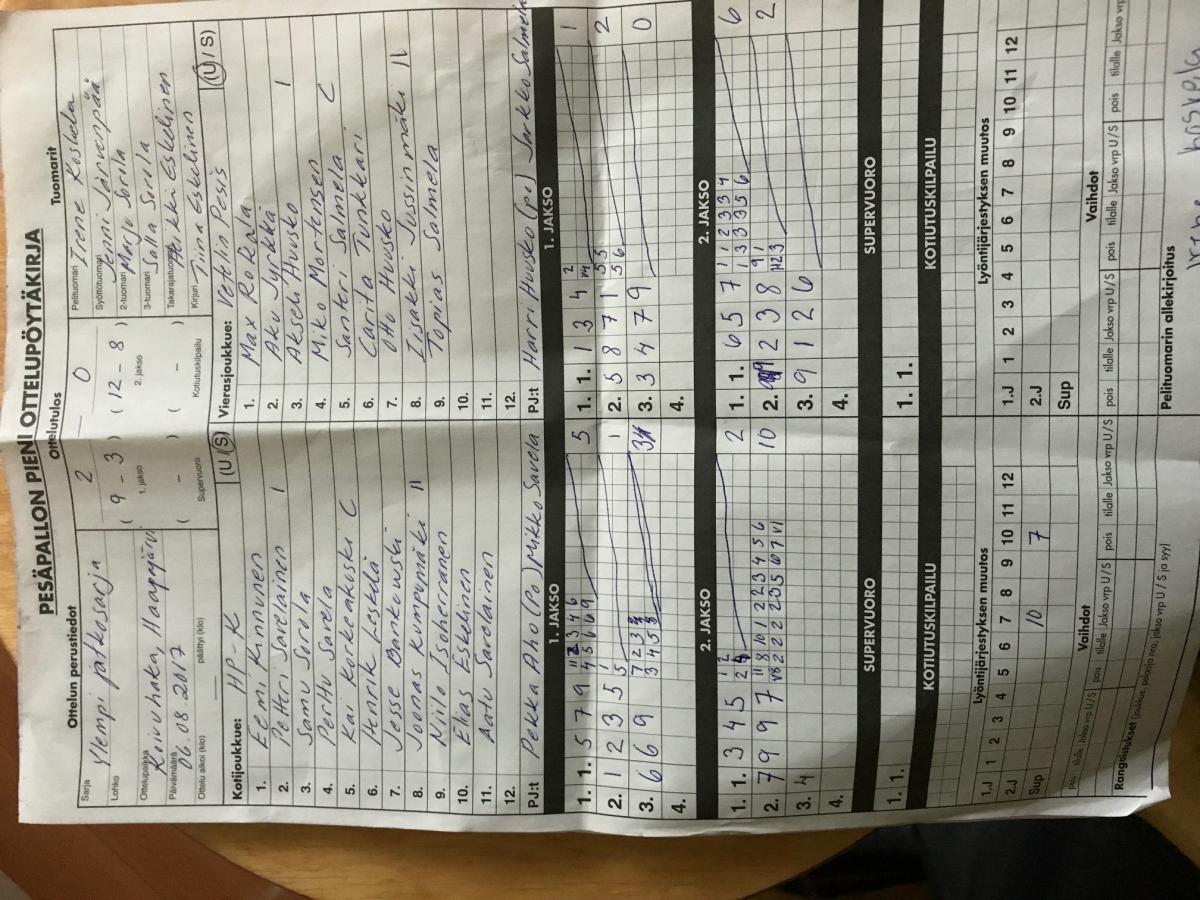 PESÄPALLON PIENI OTTELUPÖYTÄKIRJA
Ottelun perustiedot
Sarja
Ylempi jatkosarja
Lohko
Ottelupaikka
Koivuhaka, Haapajärvi
Päivämäärä
06.08.2017
Ottelu alkoi (klo) päättyi (klo)
Ottelutulos
2 — 0
( 9 - 3 ) ( 12 - 8 )
1. jakso 2. jakso
( - ) ( - )
Supervuoro Kotiutuskilpailu
Tuomarit
Pelituomari Irene Koskela
Syöttötuomari Jenni Järvenpää
2-tuomari Marjo Sorola
3-tuomari Salla Sorola
Takarajatuomari Eskelinen
Kirjuri Tiina Eskelinen
Kotijoukkue: HP-K (U / S)
1. Eemi Kinnunen
2. Petteri Sarelainen I
3. Samu Sorola
4. Perttu Savela
5. Kai Korkeakoski C
6. Henrik Leskelä
7. Jesse Bankowski
8. Joonas Kumpumäki II
9. Niilo Isoherranen
10. Elias Eskelinen
11. Aatu Sarelainen
12.
PJ:t Pekka Aho (Po) Mikko Savela
Vierasjoukkue: Vetelin Pesis (U / S)
1. Max Rokala
2. Aku Jyrkkä I
3. Akseli Huusko
4. Miko Mortensen
5. Santeri Salmela C
6. Carita Tunkkari
7. Otto Huusko
8. Iisakki Jussinmäki II
9. Topias Salmela
10.
11.
12.
PJ:t Harri Huusko (po) Jarkko Salmela
1. JAKSO
1. 1. 5 7 9 5
2. 1 2 3 5 1
3. 6 6 9 3
4.
1. JAKSO
1. 1. 1 3 4 1
2. 5 8 7 1 2
3. 3 4 7 9 0
4.
2. JAKSO
1. 1. 3 4 5 2
2. 7 9 9 7 10
3. 4
4.
2. JAKSO
1. 1. 6 5 7 6
2. 2 3 8 2
3. 9 1 2 6
4.
SUPERVUORO
1. 1.
SUPERVUORO
1. 1.
KOTIUTUSKILPAILU
KOTIUTUSKILPAILU
Lyöntijärjestyksen muutos
1.J 1 2 3 4 5 6 7 8 9 10 11 12
2.J 10 7
Sup
Lyöntijärjestyksen muutos
1.J 1 2 3 4 5 6 7 8 9 10 11 12
2.J
Sup
Vaihdot
pois tilalle Jakso vrp U / S pois tilalle Jakso vrp U / S pois tilalle Jakso vrp U / S
Vaihdot
pois tilalle Jakso vrp U / S pois tilalle Jakso vrp U / S pois tilalle Jakso vrp
Rangaistukset (joukkue, pelaaja nro, jakso vrp U / S ja syy)
Pelituomarin allekirjoitus
Irene Koskela